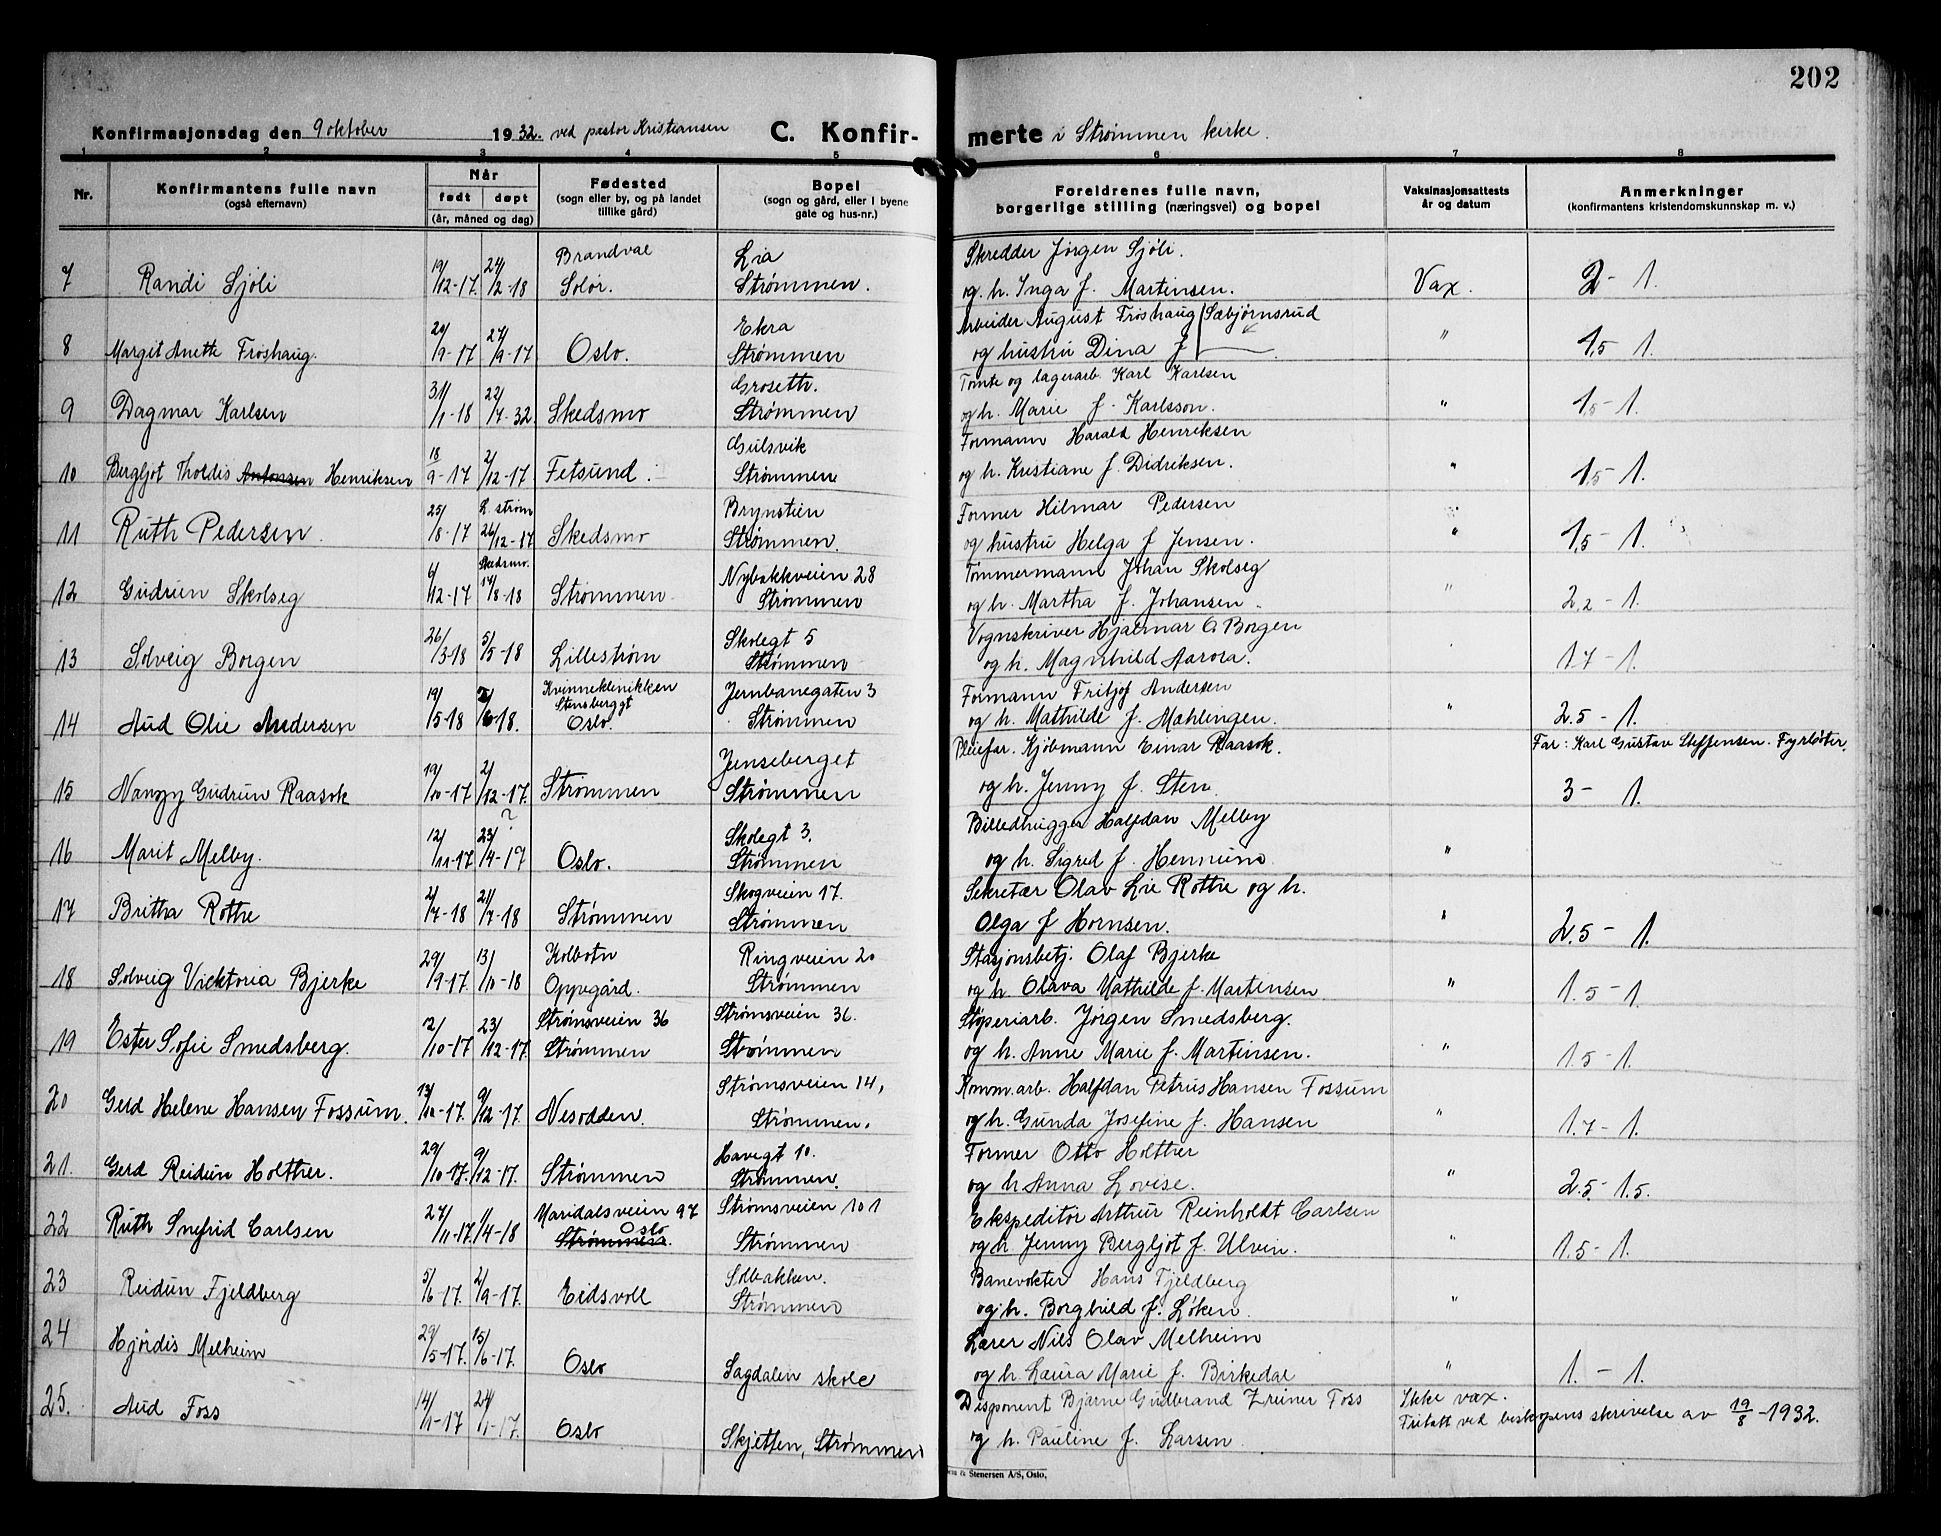 202
Konfirmasjonsdag den 9 oktober 1932. ved pastor Kristiansen C. Konfir- merte i Strømmen kirke.
1 2 3 4 5 6 7 8
Nr.
Konfirmantens fulle navn
(også efternavn)
Når
født døpt
(år, måned og dag)
Fødested
(sogn eller by, og på landet
tillike gård)
Bopel
(sogn og gård, eller i byene
gate og hus-nr.)
Foreldrenes fulle navn,
borgerlige stilling (næringsvei) og bopel
Vaksinasjonsattests
år og datum
Anmerkninger
(konfirmantens kristendomskunnskap m. v.)
Brandval Lia Skredder Jørgen Sjøli.
7 Randi Sjøli 19/12-17. 24/2-18 Solør. Strømmen. og. h. Inga f. Martinsen. Vax. 2 - 1.
Ekra Arbeider August Frøshaug Sæbjørnsrud
8 Margit Anette Frøshaug. 20/9-17 27/9-17 Oslo. Strømmen og hustru Dina f " 1,5 1.
Groseth. Tomte og lagerarb. Karl Karlsen
9 Dagmar Karlsen 31/1-18 22/7-32. Skedsmo Strømmen og h. Marie f. Karlsson. " 1,5 - 1.
Gulsvik Formann Harald Henriksen
10 Bergljot Tholdis Antonsen Henriksen 18/9-17 2/12-17 Fetsund. Strømmen og h. Kristiane f. Didriksen. " 1,5 - 1.
L. strøm Brynstien Former Hilmar Pedersen
11 Ruth Pedersen. 25/8-17 26/12-17 Skedsmo Strømmen. og hustru Helga f Jensen. " 1,5 - 1.
Skedsmo. Nybakkveien 28 Tømmermann Johan Skolseg
12 Gudrun Skolseg /12-17 14/8-18 Strømmen Strømmen og h. Martha f. Johansen. " 2,2 - 1.
Skolegt 5 Vognskriver Hjalmar G Borgen
13 Solveig Borgen 26/3-18 5/5-18 Lillestrøm Strømmen og h. Magnhild Aurora. 1.7 - 1.
Kvinneklinikken Jernbanegaten 3 Formann Fritjof Andersen
Stensberggt
14 Aud Olie Andersen 19/5-18 /6-18. Oslo. Strømmen og h. Mathilde f. Mæhlingen. " 2.5 - 1.
Jenseberget Pleiefar. Kjøbmann Einar Raasok. Far: Karl Gustav Steffensen. Fyrbøter.
15 Nanzy Gudrun Raasok 19/10-17 2/12-17. Strømmen Strømmen og h. Jenny f. Sten. 3 - 1.
? Skolegt 3. Billedhugger Halfdan Melby
16 Marit Melby. 12/11-17 23/4-19 Oslo. Strømmen og h. Sigrid f. Hennum "
Skogveien 17. Sekretær Olav Lie Rothe og h.
17 Britha Rothe 2/7-18 21/7-18 Strømmen Strømmen Olga f Hornsen. " 2.5 - 1.
Kolbotn Ringveien 20 Stasjonsbetj. Olaf Bjerke
18 Solveig Vicktoria Bjerke 29/9-17 13/10-18 Oppegård. Strømmen og h. Olava Mathilde f. Martinsen " 1.5 - 1.
Strømsveien 36 Strømsveien 36. Støperiarb. Jørgen Smedsberg.
19 Ester Sofie Smedsberg. 12/10-17 23/12-17. Strømmen Strømmen og h. Anne Marie f. Martinsen. " 1.5 - 1.
Strømsveien 14, Komm. arb. Halfdan Petrus Hansen Fossum
20 Gerd Helene Hansen Fossum. 13/10-17. 9/12-17. Nesodden. Strømmen. og h. Gunda Josefine f. Hansen " 1.7 - 1.
Havegt 10. Former Otto Holther
21. Gerd Reidun Holther. 29/10-17. 9/12-17. Strømmen Strømmen. og h. Anna Lovise. " 2.5 - 1.5.
Maridalsveien 97 Strømsveien 101 Ekspeditør Arthur Reinholdt Carlsen
Oslo
22 Ruth Snefrid Carlsen 27/11-17. 11/4-18 Strømmen. Strømmen og h. Jenny Bergljot f. Ulvin. " 1.5 - 1.
Solbakken. Banevokter Hans Fjeldberg
23 Reidun Fjeldberg 5/6-17. 2/9-17. Eidsvoll Strømmen og h. Borghild f. Løken. "
Lærer Nils Olav Melheim
24 Hjørdis Melheim 29/5-17. 15/6-17. Oslo Sagdalen skole og h. Laura Marie f. Birkedal " 1. - 1.
Disponent Bjarne Gudbrand Zeiner Foss Ikke vax.
Fritatt ved biskopens skrivelse av 19/8 -1932.
25. Aud Foss 14/1-17 24/1-17. Oslo Skjetten, Strømmen og h. Pauline f. Larsen
& Stenersen A/S, Oslo,